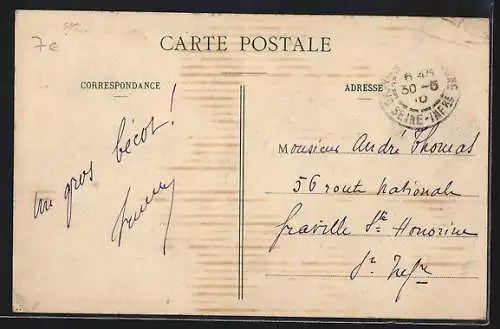 7€
CARTE POSTALE
CORRESPONDANCE
ADRESSE
6 45
30 - 5
10
SEINE-INFRE
un gros bécot !
Monsieur André Thomas
56 route Nationale
Graville Ste Honorine
Se Infre